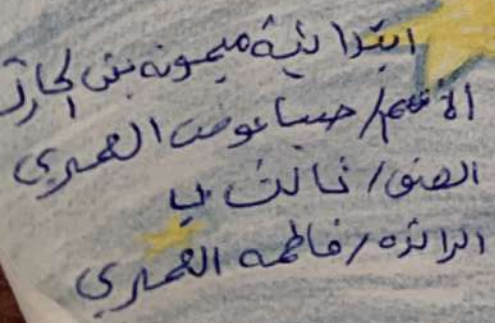 ابتدائية ميمونه بنت الحارث
الأسم / صبا عوض العمري
الصف / ثالث ب
الرائده / فاطمه العمري